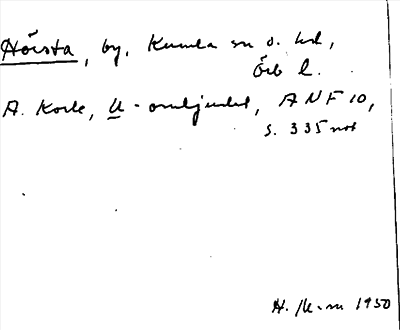 Hörsta, by, Kumla sn o. hd,
Örb l.
A. Kock, U-omljudet, ANF 10,
s. 335 not
H. 1950